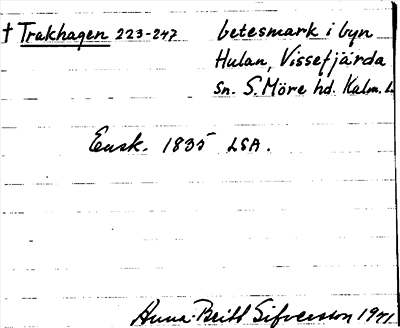 † Trakhagen 223-247 betesmark i byn
Hulan, Vissefjärda
sn. S. Möre hd. Kalm. L.
Ensk. 1835 LSA.
Anna-Britt Sifversson 1941